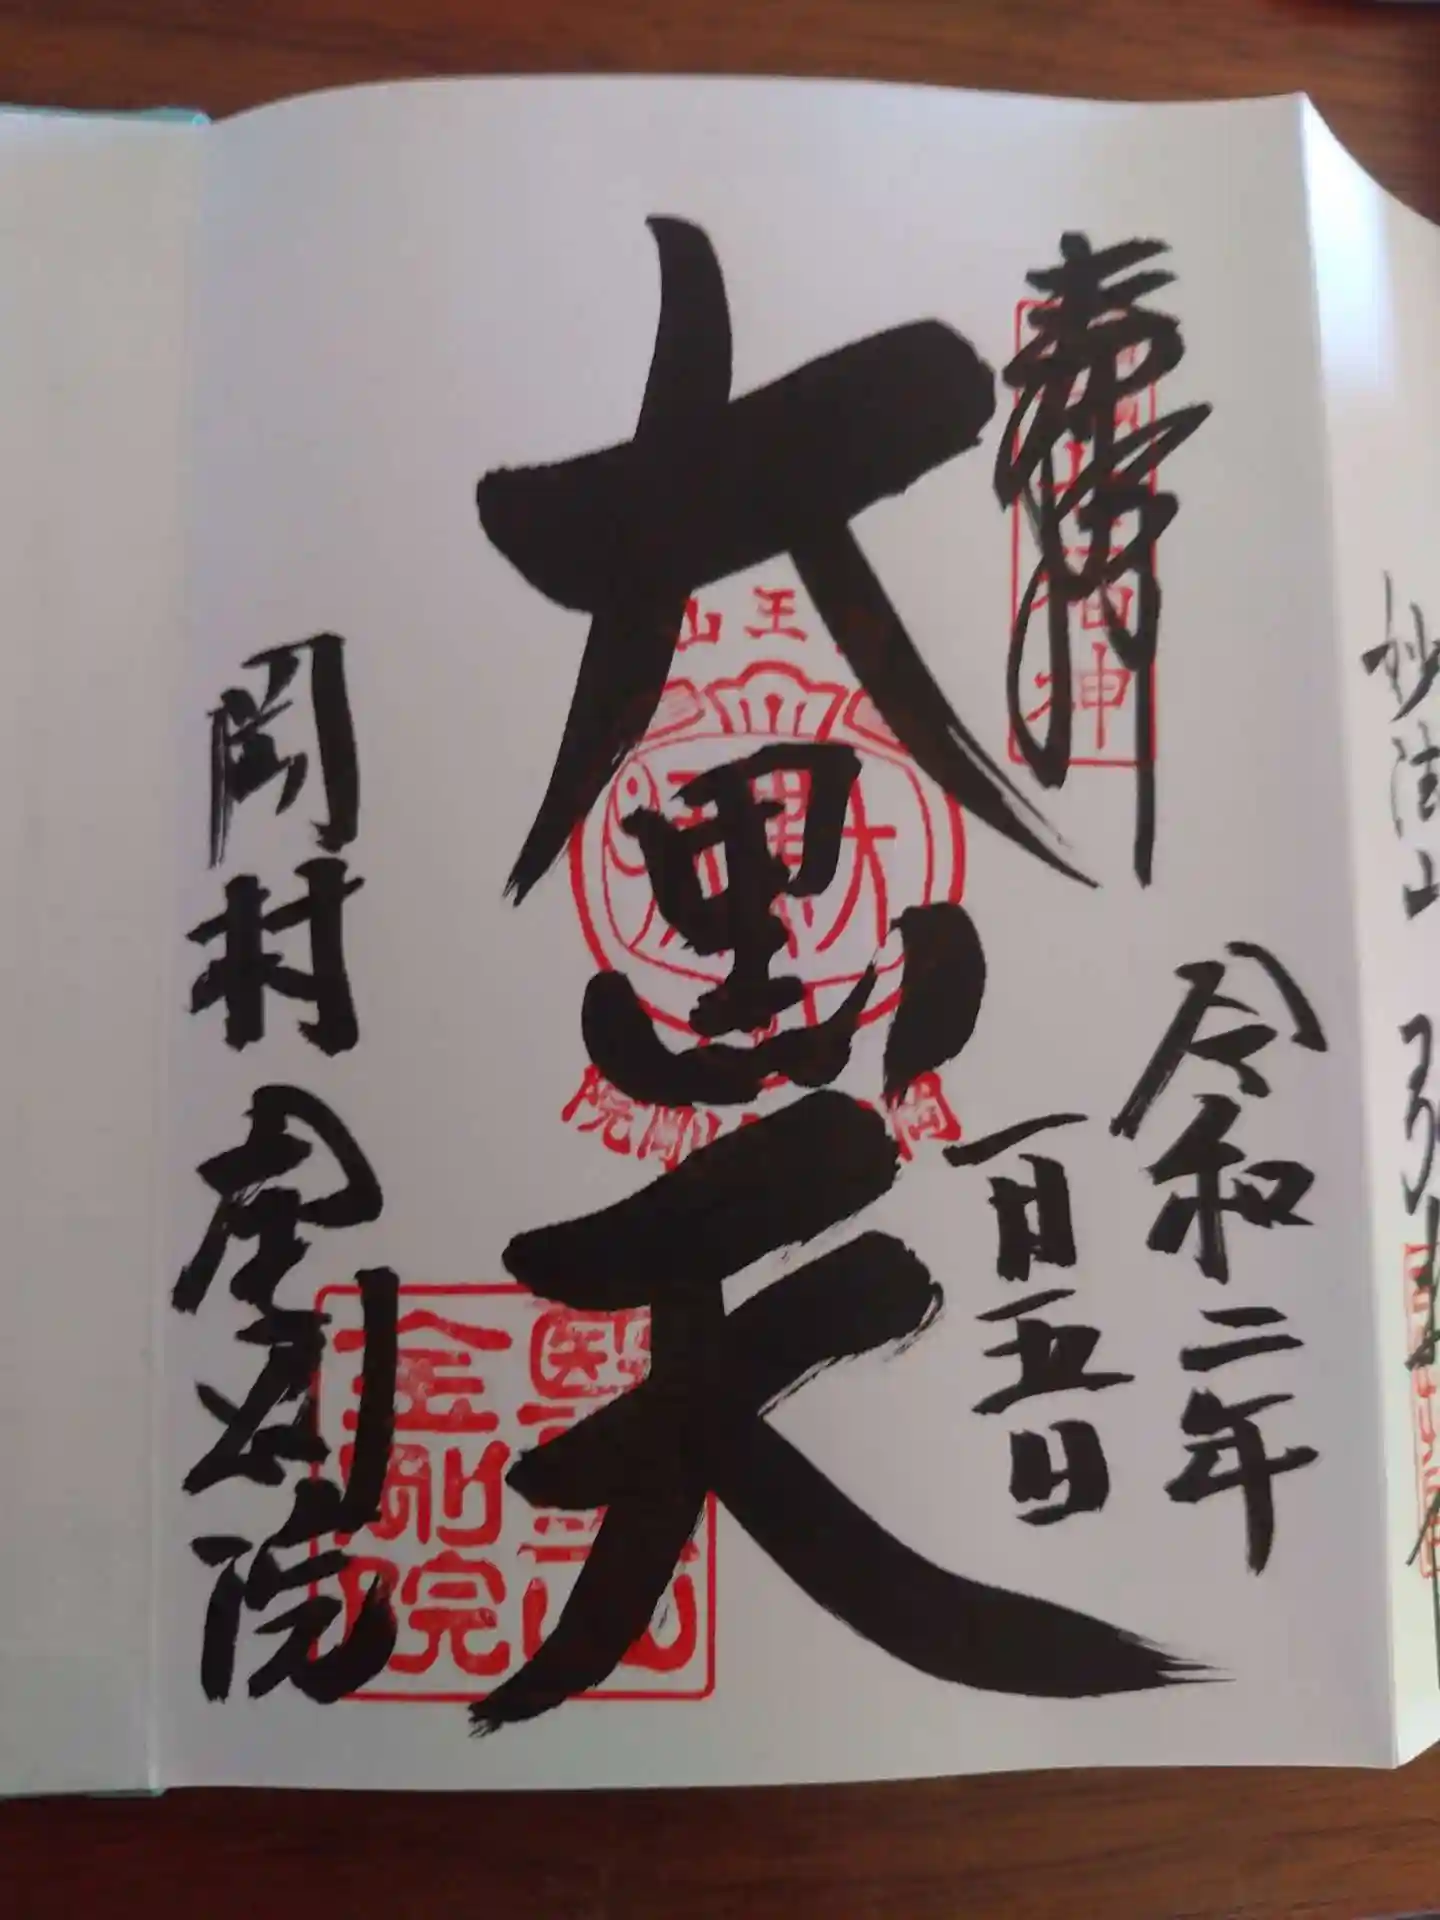 奉拝
令和二年
一月五日
大黒天
岡村
金剛院
王山
福神
岡
剛院
金剛院
妙法山